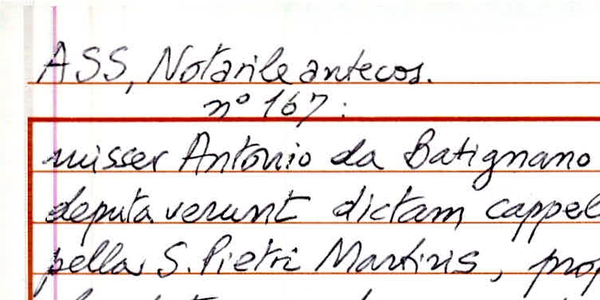 ASS, Notarile antecos.
n° 167:
misser Antonio da Batignano
deputaverunt dictam cappel
pella S. Pietri Martiris, prop